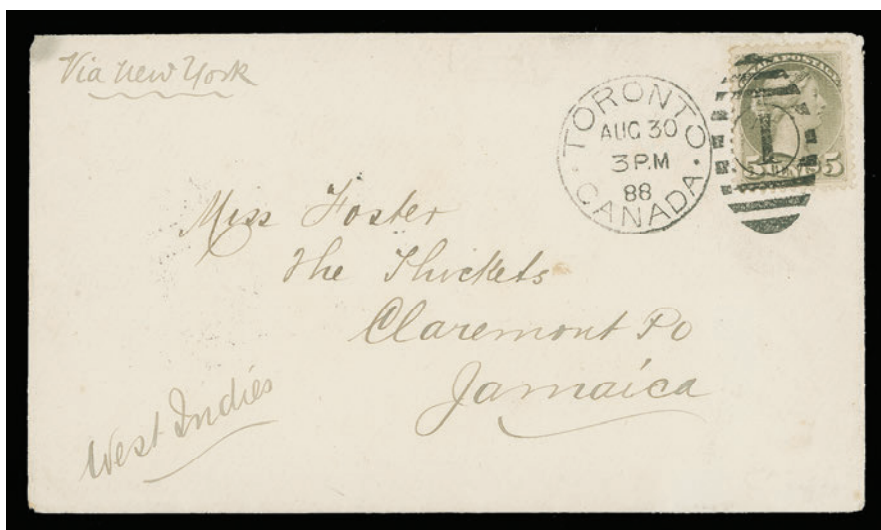 Via New York
TORONTO
AUG 30
3 P.M
88
CANADA
1
5 5
Miss Foster
The Thickets
Claremont Po
Jamaica
West Indies